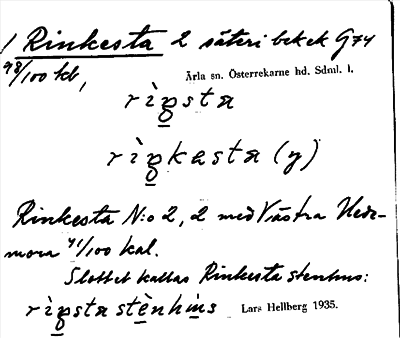 1 Rinkesta 2 säteri bekek G74
98/100 kb,
Ärla sn. Österrekarne hd. Sdml. l.
rìŋsta
rìŋkesta (y)
Rinkesta N:o 2, 2 med Västra Hede-
mora 41/100 kal.
Slottet kallas Rinkesta stenhus:
rìŋstastènhùs Lars Hellberg 1935.